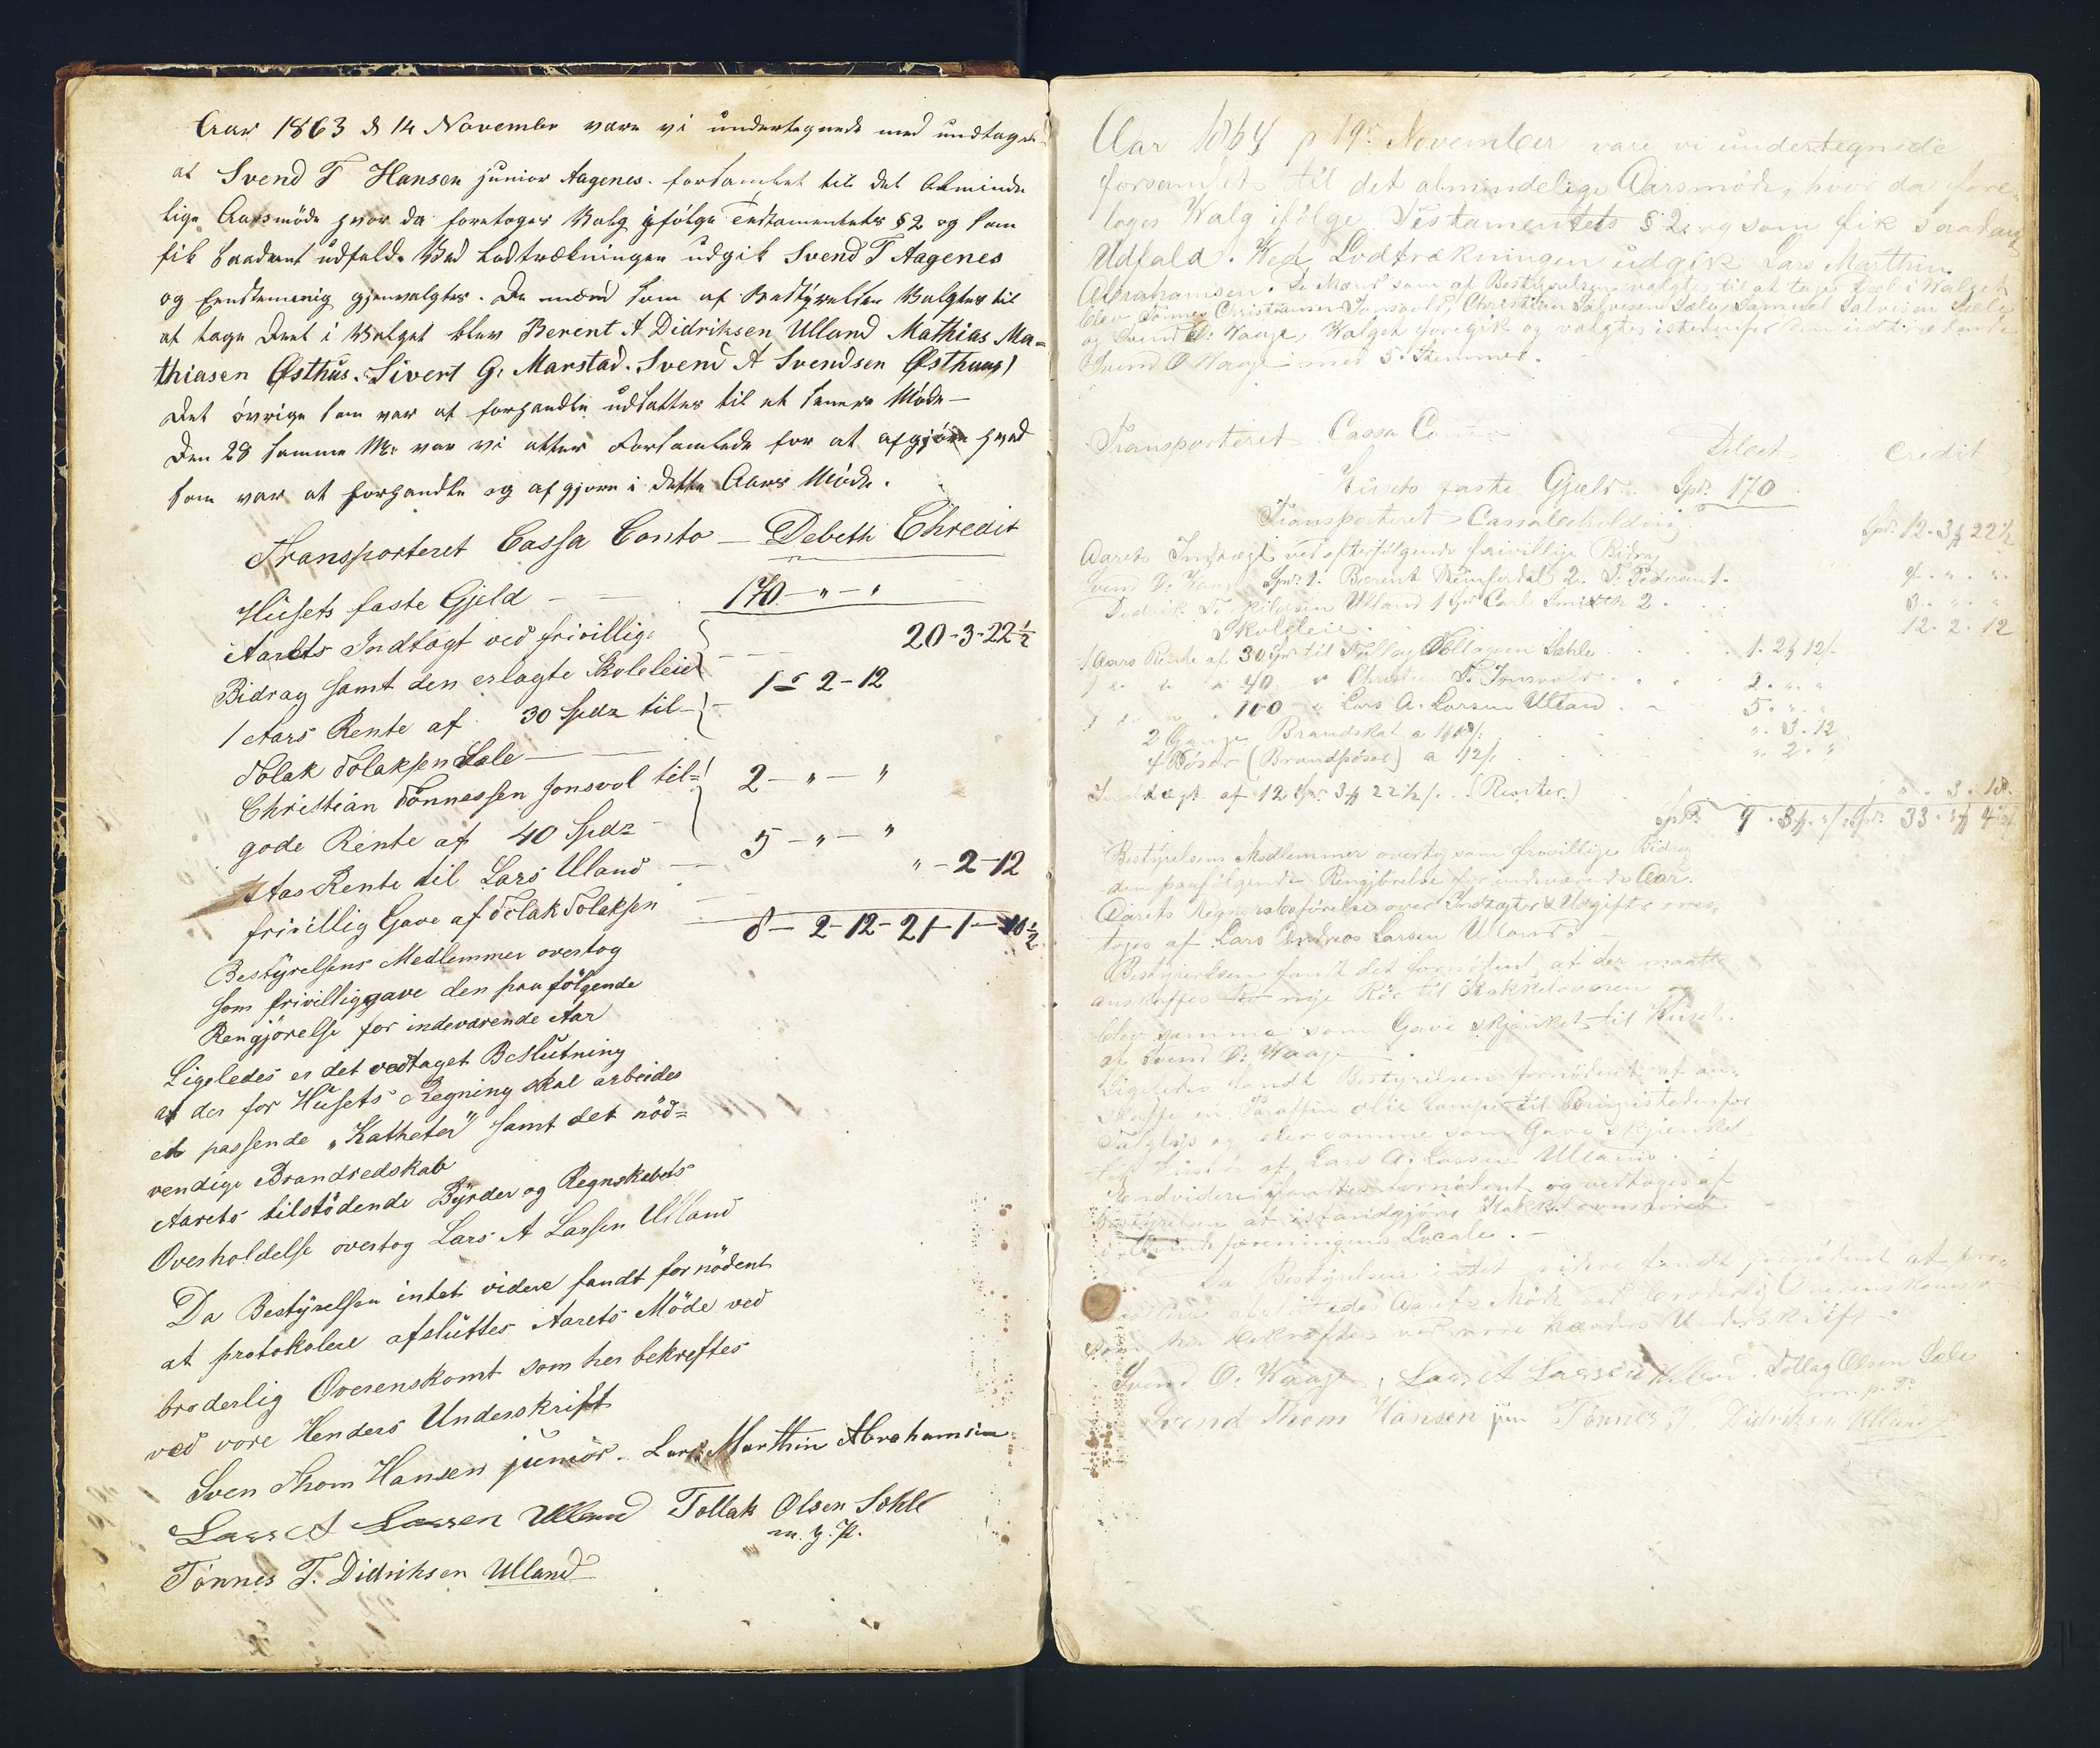 Aar 1863 d 14 November vare vi undertegnede med undtagelse
at Svend T Hansen junior Aagenes. forsamlet til det Alminde
lige Aarsmøde hvor da foretoges Valg ifølge Testamentets § 2 og som
fik saadant udfald. Ved Lodtrækningen udgik Svend T Aagenes
og Eenstemmig gjenvalgtes. De mænd som af Bestyrelsen Valgtes til
at tage Deel i Valget blev Berent A. Didriksen Ulland Mathias Ma=
thiasen Østhus. Sivert G. Marstad. Svend A Svendsen Østhuus)
Det øvrige som var at forhandle udsattes til et senere Møde —
Den 28 samme M: var vi atter Forsamlede for at afgjøre hvad
som var at forhandle og afgjøre i dette Aars Møde.
Transporteret Cassa Conto — Debeth Chredit
Husets faste Gjeld — 170 — " — "
Aarets Indtægt ved frivillige
20 - 3 - 22 ½
Bidrag samt den erlagte Skoleleie
1 Aars Rente af 30 Spdz til — 1 - 2 - 12
Tolak Tolaksen Sale —
Christian Tønnessen Jonsvol til= 2 — " — "
gode Rente af 40 Spdz
Aas Rente til Lars Uland — 5 — " — "
frivillig Gave af Tolak Tolaksen — " - 2 - 12
8 — 2 - 12 - 21 - 1 - 10 ½
Bestyrelsens Medlemmer overtog
som frivillig gave den paa følgende
Rengjørelse for indeværende Aar
Ligeledes er det vedtaget Beslutning
at der for Husets Regning skal arbeides
et passende „Katheter" samt det nød=
vendige Brandredskab
Aarets tilstødende Byrder og Regnskabets
Overholdelse overtog Lars A Larsen Ulland
Da Bestyrelsen intet videre fandt fornødent
at protokolere afsluttes Aarets Møde ved
broderlig Overenskomt som her bekreftes
ved vore Henders Underskrift
Sven Thom Hansen junior. Lars Marthin Abrahamsen
Lars A Larsen Ulland Tollak Olsen Sehle
m. p. P.
Tønnes T. Didriksen Ulland
Aar 1864 d 19 November vare vi undertegnede
forsamlet til det almindelige Aarsmøde, hvor da fore-
toges Valg ifølge Testamentets § 2. og som fik saadant
Udfald. Ved Lodtrækningen udgik Lars Marthin
Abrahamsen. De Mænd som af Bestyrelsen valgtes til at tage Deel i Valget
blev Tønnes Christiansen Jonsvold, Christian Salvesen Sæle, Samuel Salvesen Sæle
og Svend O. Vaage, Valget foregik og valgtes istedenfor den udtrædende
Svend O Vaage med 5 Stemmer.
Transporteret Cassa Conto Debet Credit
Husets faste Gjæld. Spd. 170
Transporteret Cassabeholdning Spd. 12. 3 22½
Aarets Indtægt ved efterfølgende frivillige Bidrag
Svend O. Vaage Spd. 1. Berent 2. T. Pedersen 1. 4. " . "
Didrik Ulland 1 Spd Carl Smith 2. 3. " . "
Skoleleie. 12. 2. 12
1 Aars Rente af 30 Spd til Tollag Tollagsen Sehle 1. 2 12
1 " " " 40 " Christian T. Jonsvold 2. " . "
1 " " " 100 " Lars A. Larsen Ulland 5. " . "
2 Gange Brandskat a ". 3. 12
4 Pøser (Brandpøser) a 12 ". 2. "
Indtægt af 12 Spd. 3 22½. (Renter.) ". 3. 18
Spd. 9. 3. " Spd. 33. 4½
Bestyrelsens Medlemmer overtog som frivillige Bidrag
den paafølgende Rengjørelse for indeværende Aar.
Aarets Regnskabsførelse over Indtægter & Udgifter over-
toges af Lars Andreas Larsen Ulland.
Bestyrelsen fandt det fornødent, at der maatte
anskaffes to nye Rør til Kakkelovnen og
blev samme som Gave skjenket til Huset
af Svend O. Vaage
Ligeledes fandt Bestyrelsen fornødent at an-
skaffe en Paraffin olie Lampe til Brug istedenfor
Talglys og blev samme som Gave skjenket
til Huset af Lars A. Larsen Ulland.
Endvidere fandtes fornødent og vedtoges af
Bestyrelsen at istandgjøre Kakkelovnsrøret
i Kvindeforeningens Locale. —
Da Bestyrelsen intet videre fandt fornødent at pro-
tokolere afsluttedes Aarets Møde ved broderlig Overenskomst
som her bekræftes ved vore Hænders Underskrift
Svend O. Vaage, Lars A Larsen Ulland. Tollag Olsen Sæle
m. p. P.
Svend Thom Hansen jun Tønnes T Didriksen Ulland